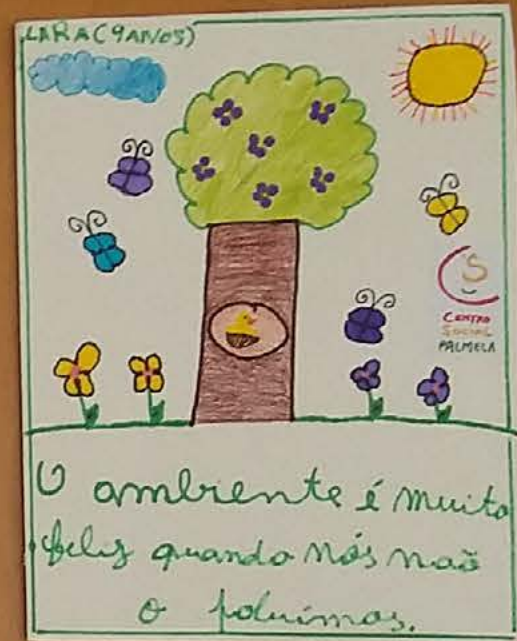 LARA (9 ANOS)
CS
CENTRO
SOCIAL
PALMELA
O ambiente é muito
feliz quando nós naõ
o poluimos.